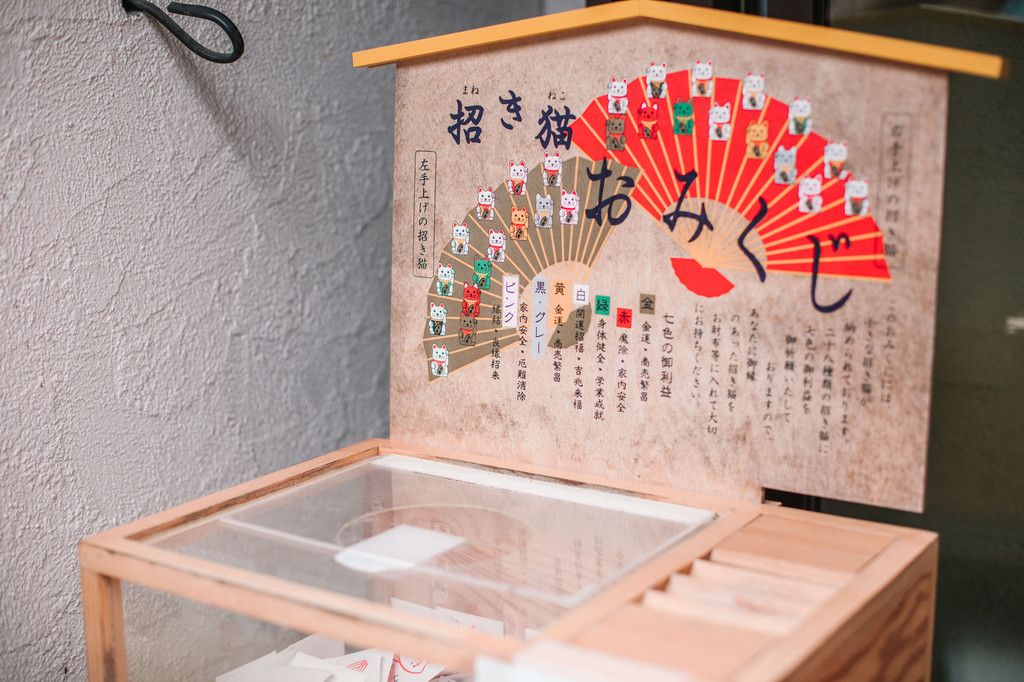 招き猫
まね ねこ
おみくじ
右手上げの招き猫
このおみくじには
小さな招き猫が
納められております。
二十八種類の招き猫に
七色の御利益を
御祈願いたして
おりますので、
あなたに御縁
のあった招き猫を
お財布等に入れて大切
にお持ちください。
七色の御利益
金 金運・商売繁昌
赤 魔除・家内安全
緑 身体健全・学業成就
白 開運招福・吉兆来福
黄 金運・商売繁昌
黒・グレー 家内安全・厄難消除
ピンク 縁結・良縁招来
左手上げの招き猫